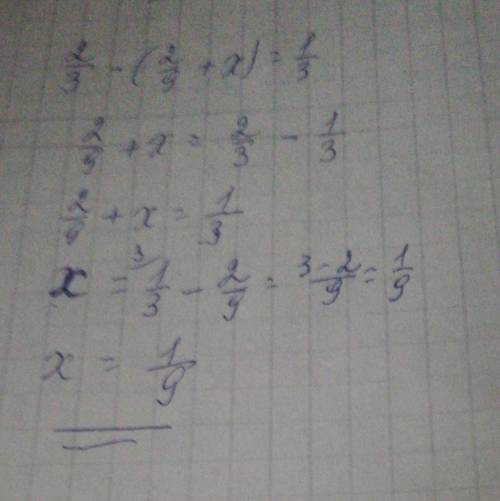 2/3 - (2/9 + x) = 1/3
2/9 + x = 2/3 - 1/3
2/9 + x = 1/3
x = 3) 1/3 - 2/9 = (3-2)/9 = 1/9
x = 1/9